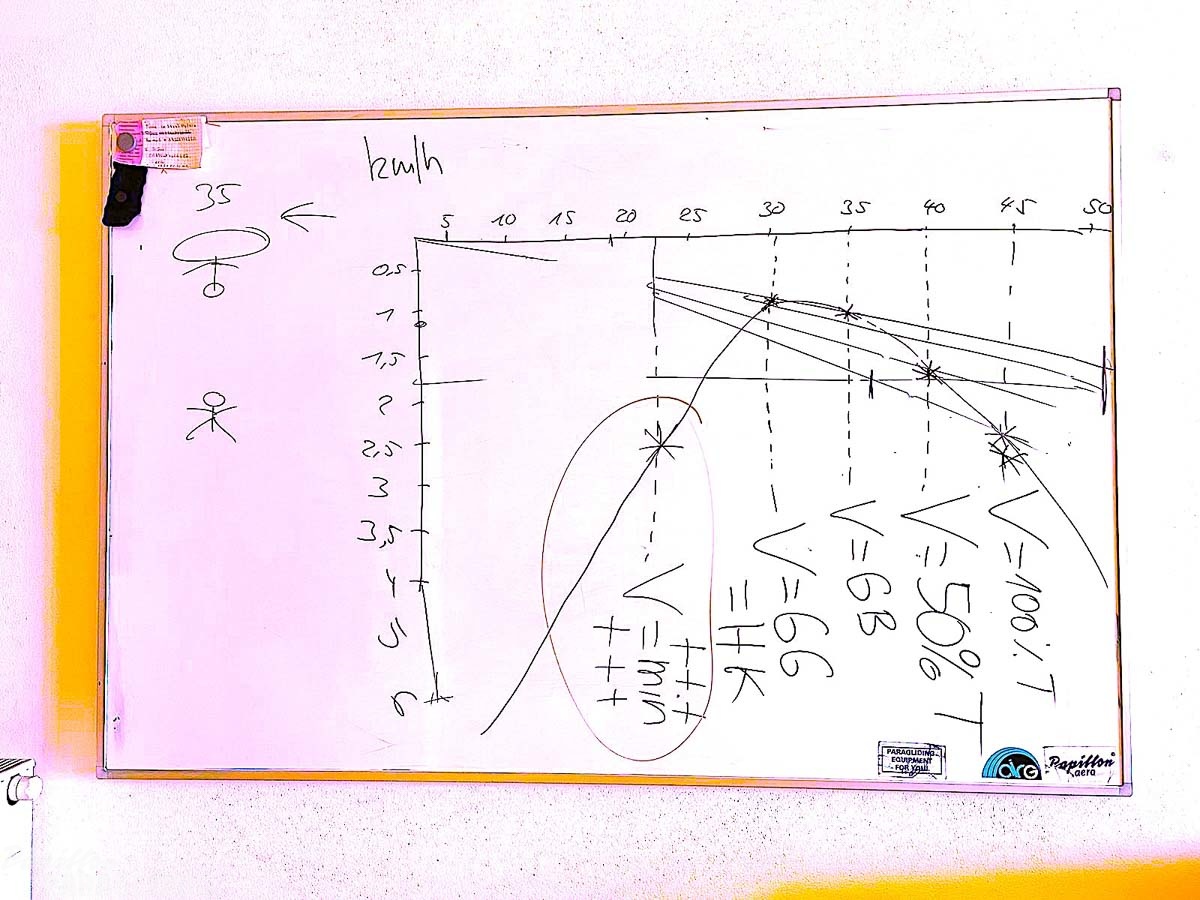 km/h
35
5 10 15 20 25 30 35 40 45 50
0,5
1
1,5
2
2,5
3
3,5
4
5
6
V=min
+++
+++
V=GG
=HK
V=GB
V=50% T
V=100% T
PARAGLIDING
EQUIPMENT
FOR YOU!
Papillon
aero